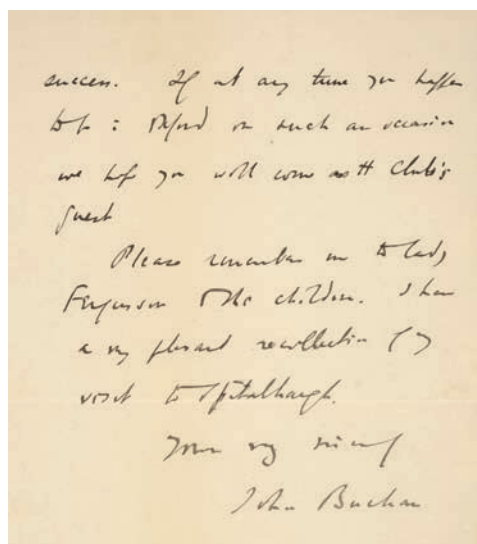 success. If at any time you happen
to be in Oxford on such an occasion
we hope you will come as the Club's
guest
Please remember me to Lady
Fergusson & the children. I have
a very pleasant recollection of my
visit to Spitalhaugh.
Yours very sincerely
John Buchan